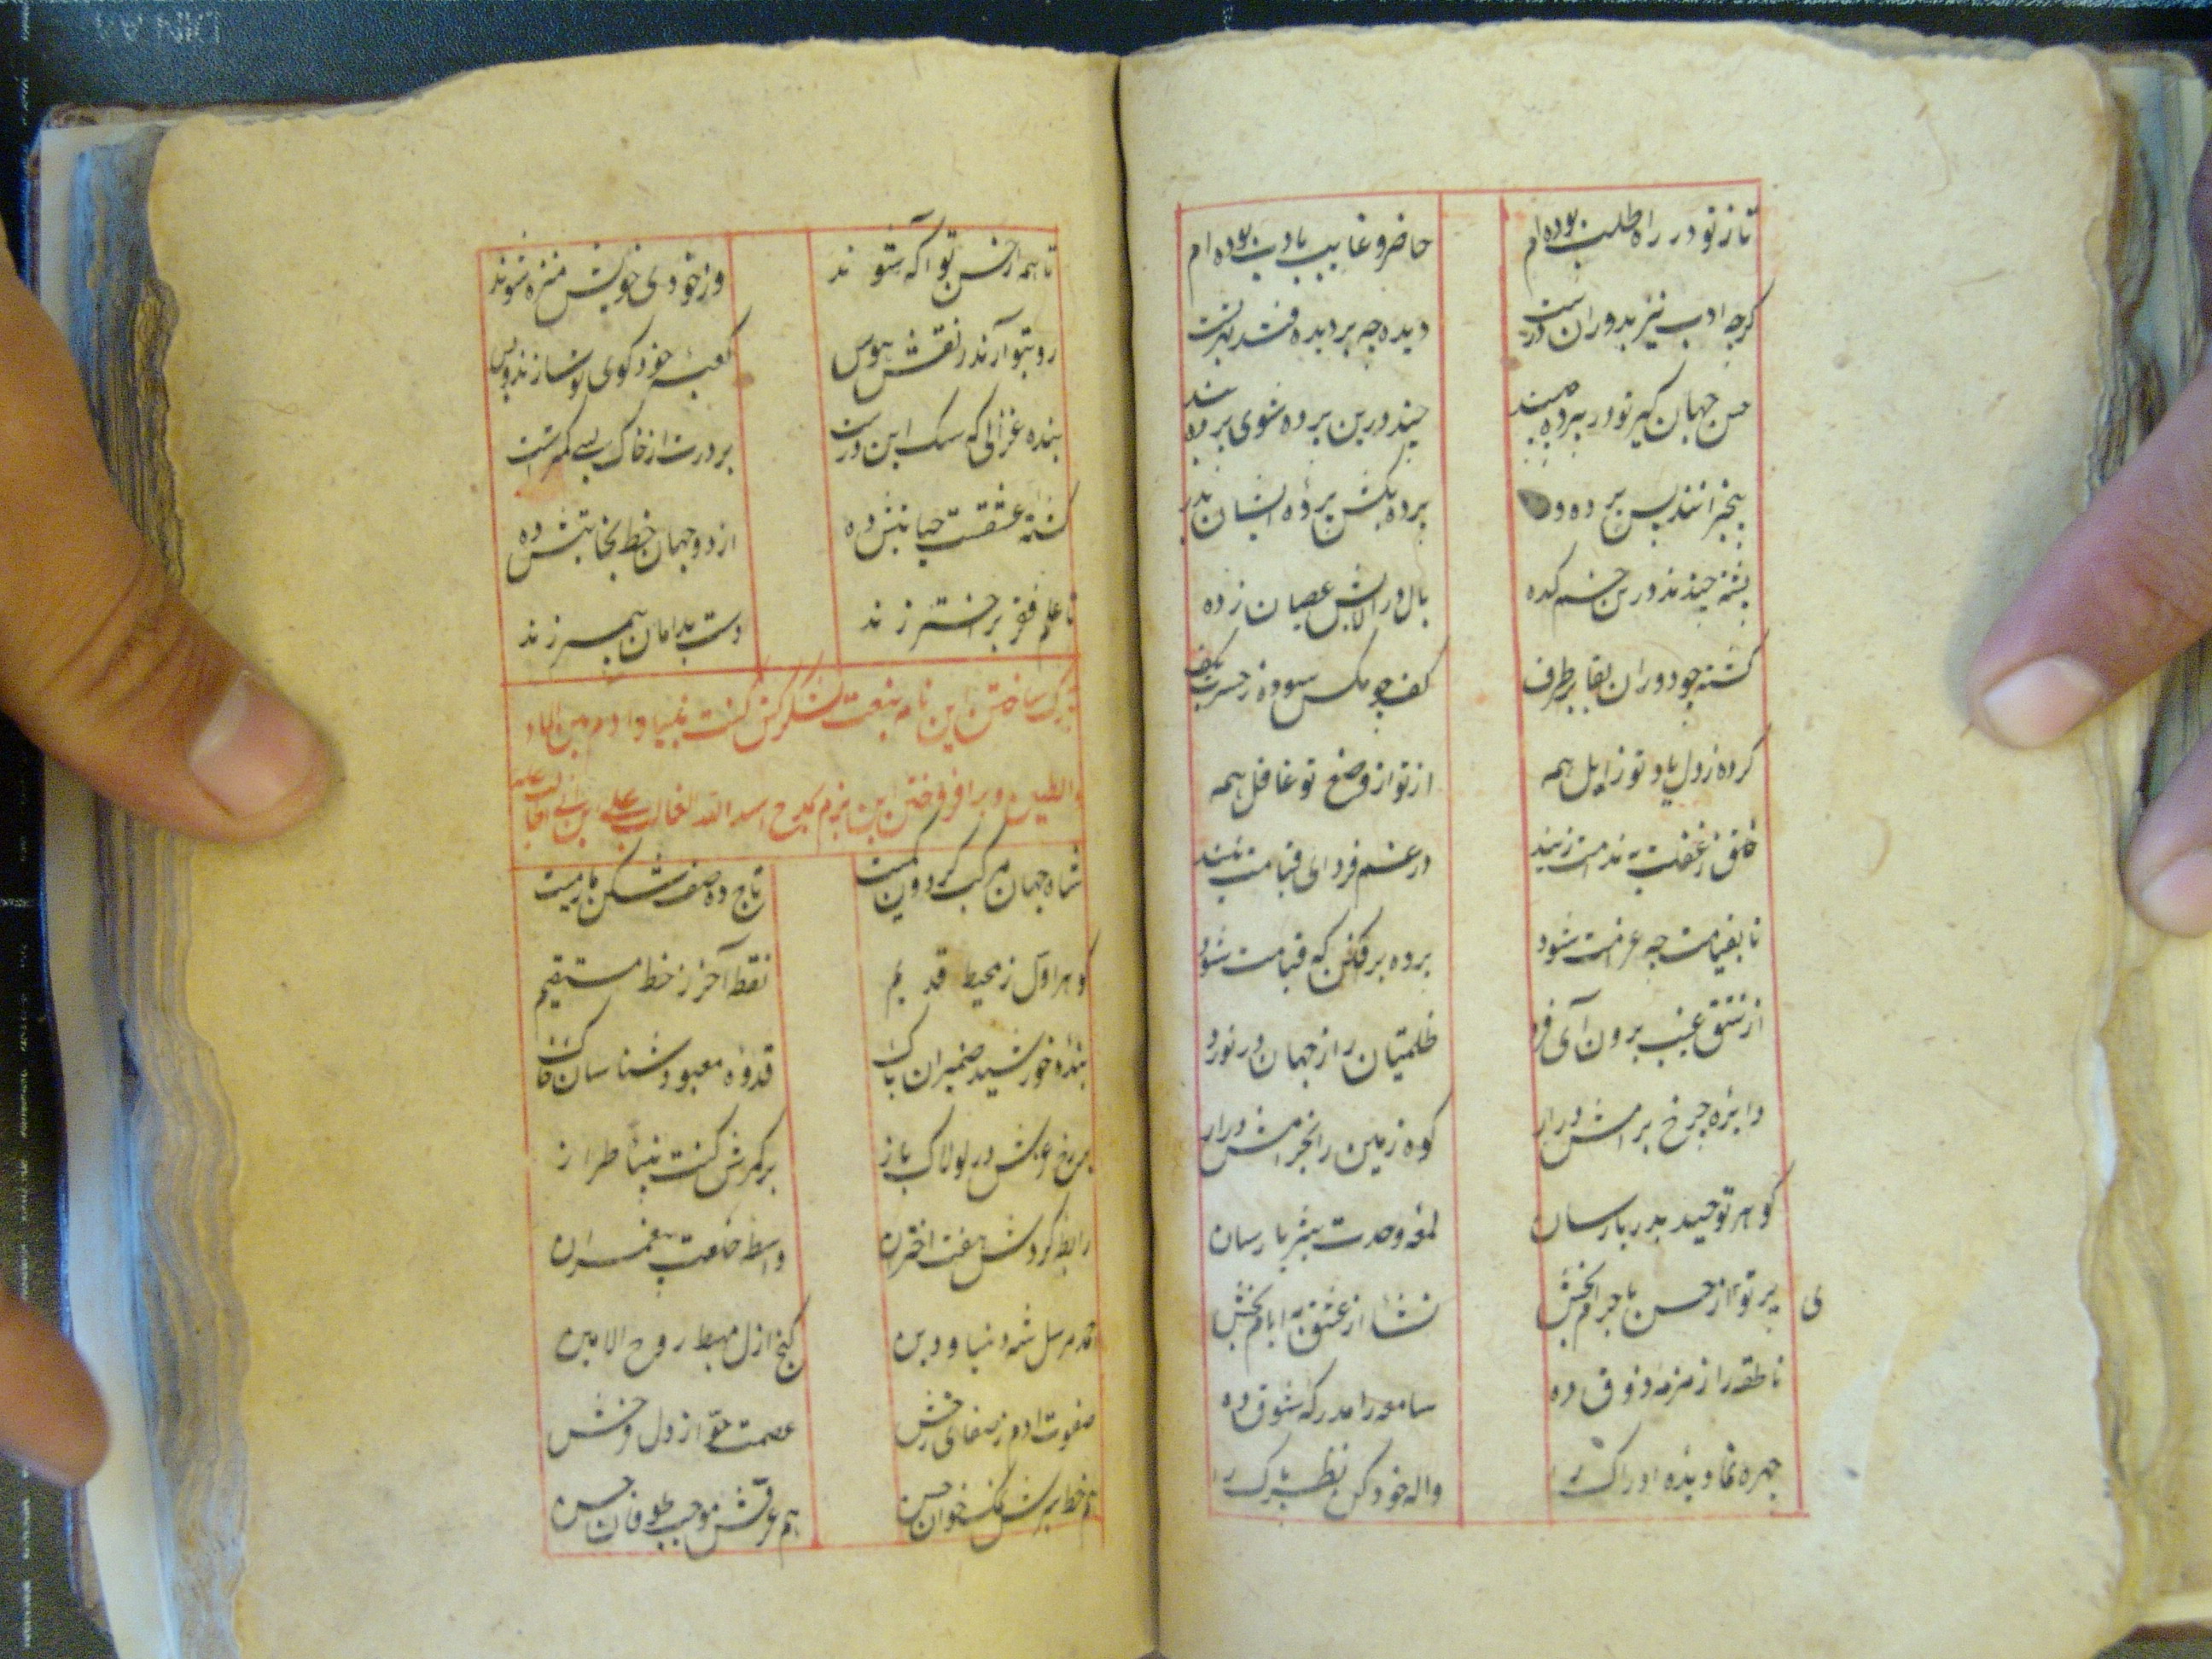 تا ز تو در راه طلب بوده ام
حاضر و غایب بادب بوده ام
کرچه ادب نیز بدوران
دیده چه بر دیده
حسن جهان کیر تو در پرده
چند درین پرده شوی پرده
بیخبرانند پس پرده
پرده بکش پرده ایشان بدر
پشه چندند درین خم کده
بال در آلایش عصیان زده
کشته چو دوران بقا بر طرف
کف چو مکس سوده ز حسرت بکف
کرده ز دل یاد تو زایل همه
از تو از وضع تو غافل همه
خلق ز غفلت به ندامت زیند
در غم فردای قیامت نیند
تا بقیامت چه غرامت شود
پرده برفکن که قیامت شود
از تتق غیب برون آی فرد
ظلمتیان را ز جهان در نورد
دایره چرخ بر امش درار
کوه زمین را بخرامش درار
کوهر توحید بدربا رسان
لمعه وحدت بثریا رسان
پرتو از حسن باجرام بخش
ی
نشا از عشق به ایام بخش
ناطقه را زمزمه ذوق ده
سامعه را مدرکه شوق ده
چهره نما دیده ادراک را
واله خود کن نظر پاک را
تا همه از حسن تو آکه شوند
وز خودی خویش منزه شوند
رو بتو آرند ز نقش هوس
کعبه خود کوی تو سازند و بس
بنده غزالی که سک این درست
بر درت از خاک بسی کمترست
کشته عشقت حیاتیش ده
از دو جهان خط نجاتیش ده
تا علم فقر بر اختر زند
دست بدامان پیمبر زند
ساختن این نامه بنعت کنت نبیا و آدم بین الماء
والطین و برافروختن این بزم بمدح اسد الله الغالب علی ابن ابی طالب
شاه جهان مرکب کردون
تاج ده صف شکن
کوهر اول ز محیط قدیم
نقطه آخر ز خط مستقیم
بنده خورشید ضمیران پاک
قدوه معبود شناسان خاک
بر رخ وعیش در لولاک باز
بر کمرش کنت نبیا طراز
رابطه کردش هفت اختران
واسطه خلعت پیغمبران
مرسل شه دنیا و دین
کنج ازل مهبط روح الامین
صفوت آدم ز صفای رخش
عصمت حق از دل
هم خط سبزش نمک خوان حسن
هم عرقش موجب طوفان حسن